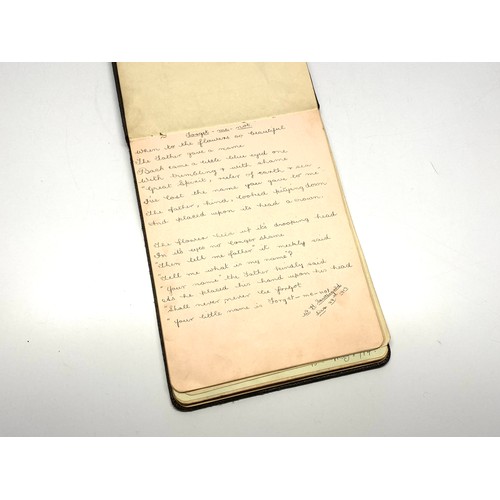 Forget-me-not
When to the flowers so beautiful
The Father gave a name
Back came a little blue eyed one
With trembling & with shame
"Great Spirit, ruler of earth & sea
I've lost the name you gave to me
The father, kind, looked pitying down
And placed upon its head a crown.
The flower then up its drooping head
In its eyes no longer shame
"Then tell me father" it meekly said
"Tell me what is my name?
"Your name" the Father kindly said
As he placed his hand upon his head
"Shall never never be forgot
"Your little name is Forget-me-not